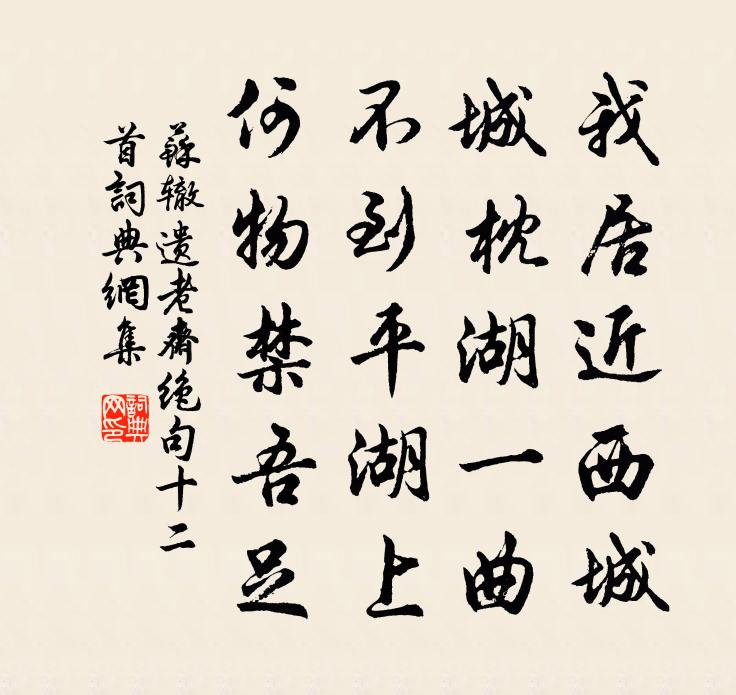 我居近西城
城枕湖一曲
不到平湖上
何物禁吾足
蘇辙遗老齋绝句十二
首詞典網集
詞典网印